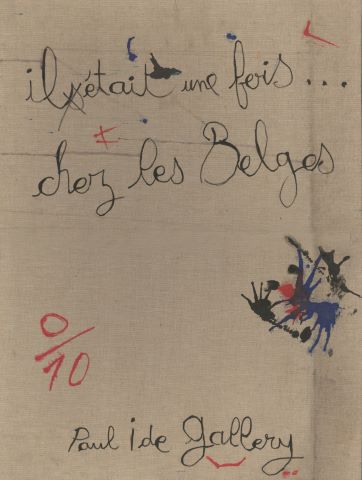 il x était une fois...
chez les Belges
0/10
Paul Ide Gallery